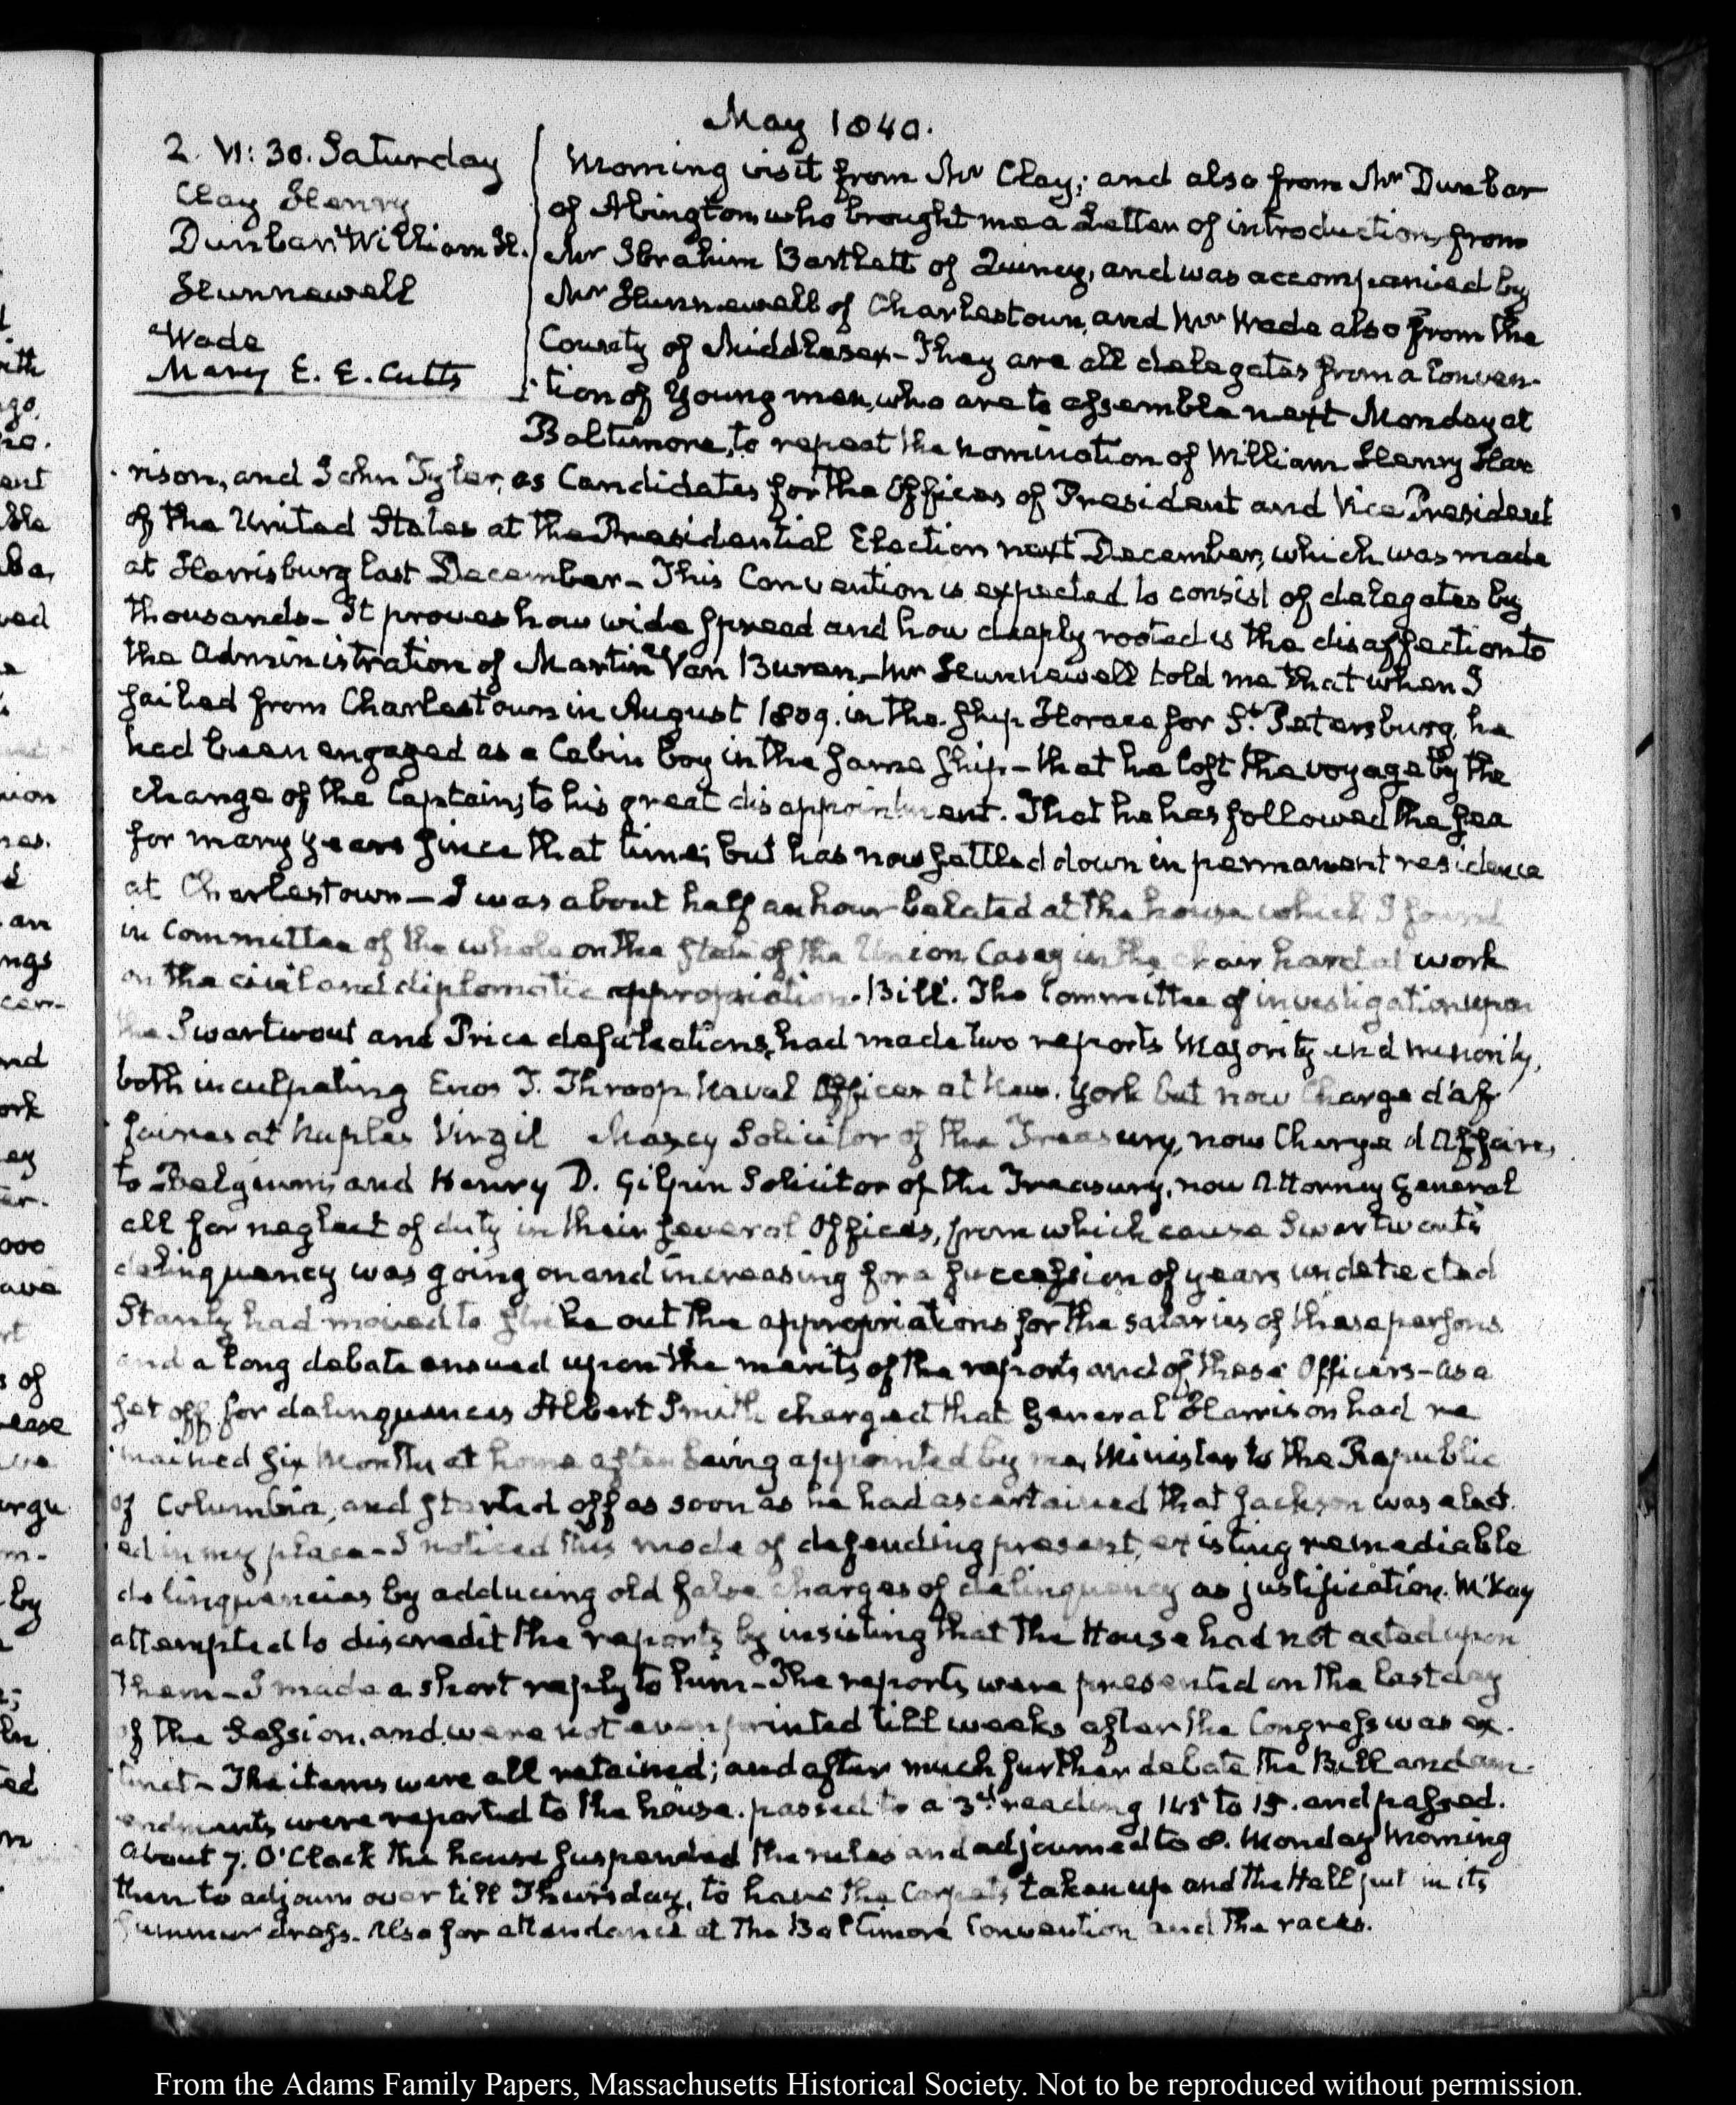 May 1840.
2. VI: 30. Saturday
Clay Henry
Dunbar William H.
Hunnewell
Wade
Mary E. E. Cutts
Morning visit from Mr Clay; and also from Mr Dunbar
of Abington who brought me a Letter of introduction from
Mr Ibrahim Bartlett of Quincy, and was accompanied by
Mr Hunnewell of Charlestown, and Mr Wade also from the
County of Middlesex - They are all delegates from a Conven-
tion of Young men, who are to assemble next Monday at
Baltimore, to repeat the nomination of William Henry Har
rison, and John Tyler, as Candidates for the Offices of President and Vice President
of the United States at the Presidential Election next December, which was made
at Harrisburg last December - This Convention is expected to consist of delegates by
thousands - It proves how wide spread and how deeply rooted is the disaffection to
the Administration of Martin Van Buren - Mr Hunnewell told me that when I
sailed from Charlestown in August 1809. in the Ship Horace for St. Petersburg, he
had been engaged as a Cabin boy in the same ship - that he lost the voyage by the
change of the Captain, to his great disappointment. That he has followed the sea
for many years since that time; but has now settled down in permanent residence
at Charlestown - I was about half an hour belated at the house which I found
in Committee of the whole on the state of the Union Casey in the chair hard at work
on the civil and diplomatic appropriation Bill. The Committee of investigation upon
the Swartwout and Price defalcations, had made two reports Majority and minority,
both inculpating Enos T. Throop, Naval Officer at New York but now Charge d'af
faires at Naples Virgil Maxcy Solicitor of the Treasury, now Charge d Affaires
to Belgium, and Henry D. Gilpin Solicitor of the Treasury, now Attorney General
all for neglect of duty in their several Offices, from which cause Swartwout's
delinquency was going on and increasing for a succession of years undetected
Stanly had moved to strike out the appropriations for the salaries of these persons
and a long debate ensued upon the merits of the reports and of these Officers - as a
set off for delinquences Albert Smith charged that General Harrison had re
mained six months at home after being appointed by me, Minister to the Republic
of Columbia, and started off as soon as he had ascertained that Jackson was elect-
ed in my place - I noticed this mode of defending present, existing remediable
delinquencies by adducing old false charges of delinquency as justification. McKay
attempted to discredit the reports by insisting that the House had not acted upon
them - I made a short reply to him - The reports were presented on the last day
of the Session, and were not even printed till weeks after the Congress was ex-
tinct - The items were all retained; and after much further debate the Bill and am-
endments were reported to the house. passed to a 3d reading 145 to 15. and passed.
About 7. O'Clock the house suspended the rules and adjourned to 8. Monday Morning
then to adjourn over till Thursday, to have the Carpets taken up and the Hall put in its
summer dress. Also for attendance at the Baltimore Convention and the races.
From the Adams Family Papers, Massachusetts Historical Society. Not to be reproduced without permission.